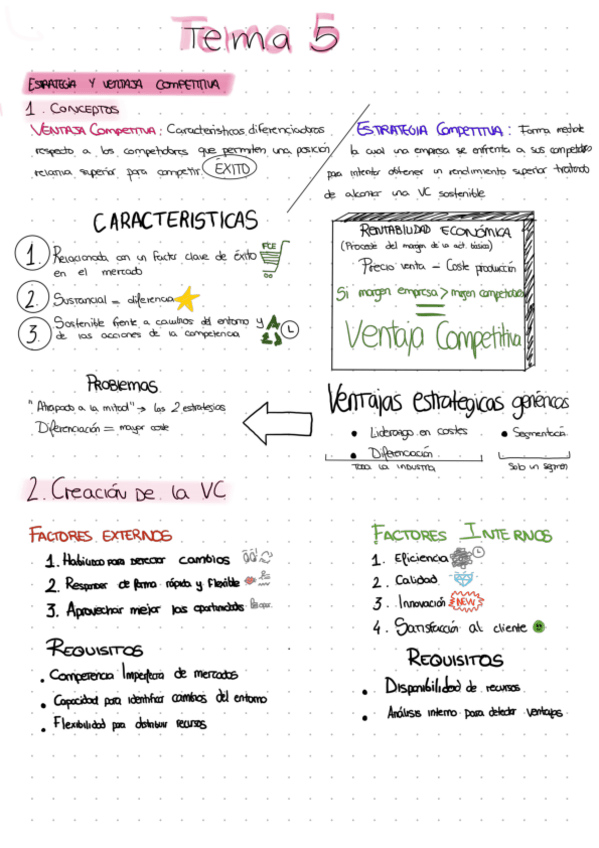 Tema 5
ESTRATEGIA Y VENTAJA COMPETITIVA
1. CONCEPTOS
VENTAJA COMPETITIVA: Características diferenciadoras
respecto a los competidores que permiten una posición
relativa superior para competir. ÉXITO
ESTRATEGIA COMPETITIVA: Forma mediante
la cual una empresa se enfrenta a sus competidores
para intentar obtener un rendimiento superior tratando
de alcanzar una VC sostenible
CARACTERISTICAS
1. Relacionada con un Factor clave de éxito
en el mercado
FCE
2. Sustancial = diferencia
3. Sostenible frente a cambios del entorno y
de las acciones de la competencia
RENTABILIDAD ECONÓMICA
(Procede del margen de la act. básica)
Precio venta - Coste producción
Si margen empresa > margen competidores
Ventaja Competitiva
PROBLEMAS
"Atrapado a la mitad" → las 2 estrategias
Diferenciación = mayor coste
Ventajas estrategicas genéricas
• Liderazgo en costes
• Diferenciación
Toda la industria
• Segmentación
Solo un segmen
2. Creación de la VC
FACTORES EXTERNOS
1. Habilidad para detectar cambios
2. Responder de forma rápida y flexible
3. Aprovechar mejor las oportunidades
REQUISITOS
• Competencia Imperfecta de mercados
• Capacidad para identificar cambios del entorno
• Flexibilidad para distribuir recursos
FACTORES INTERNOS
1. Eficiencia
2. Calidad
3. Innovación NEW
4. Satisfacción al cliente
REQUISITOS
• Disponibilidad de recursos
• Análisis interno para detectar ventajas